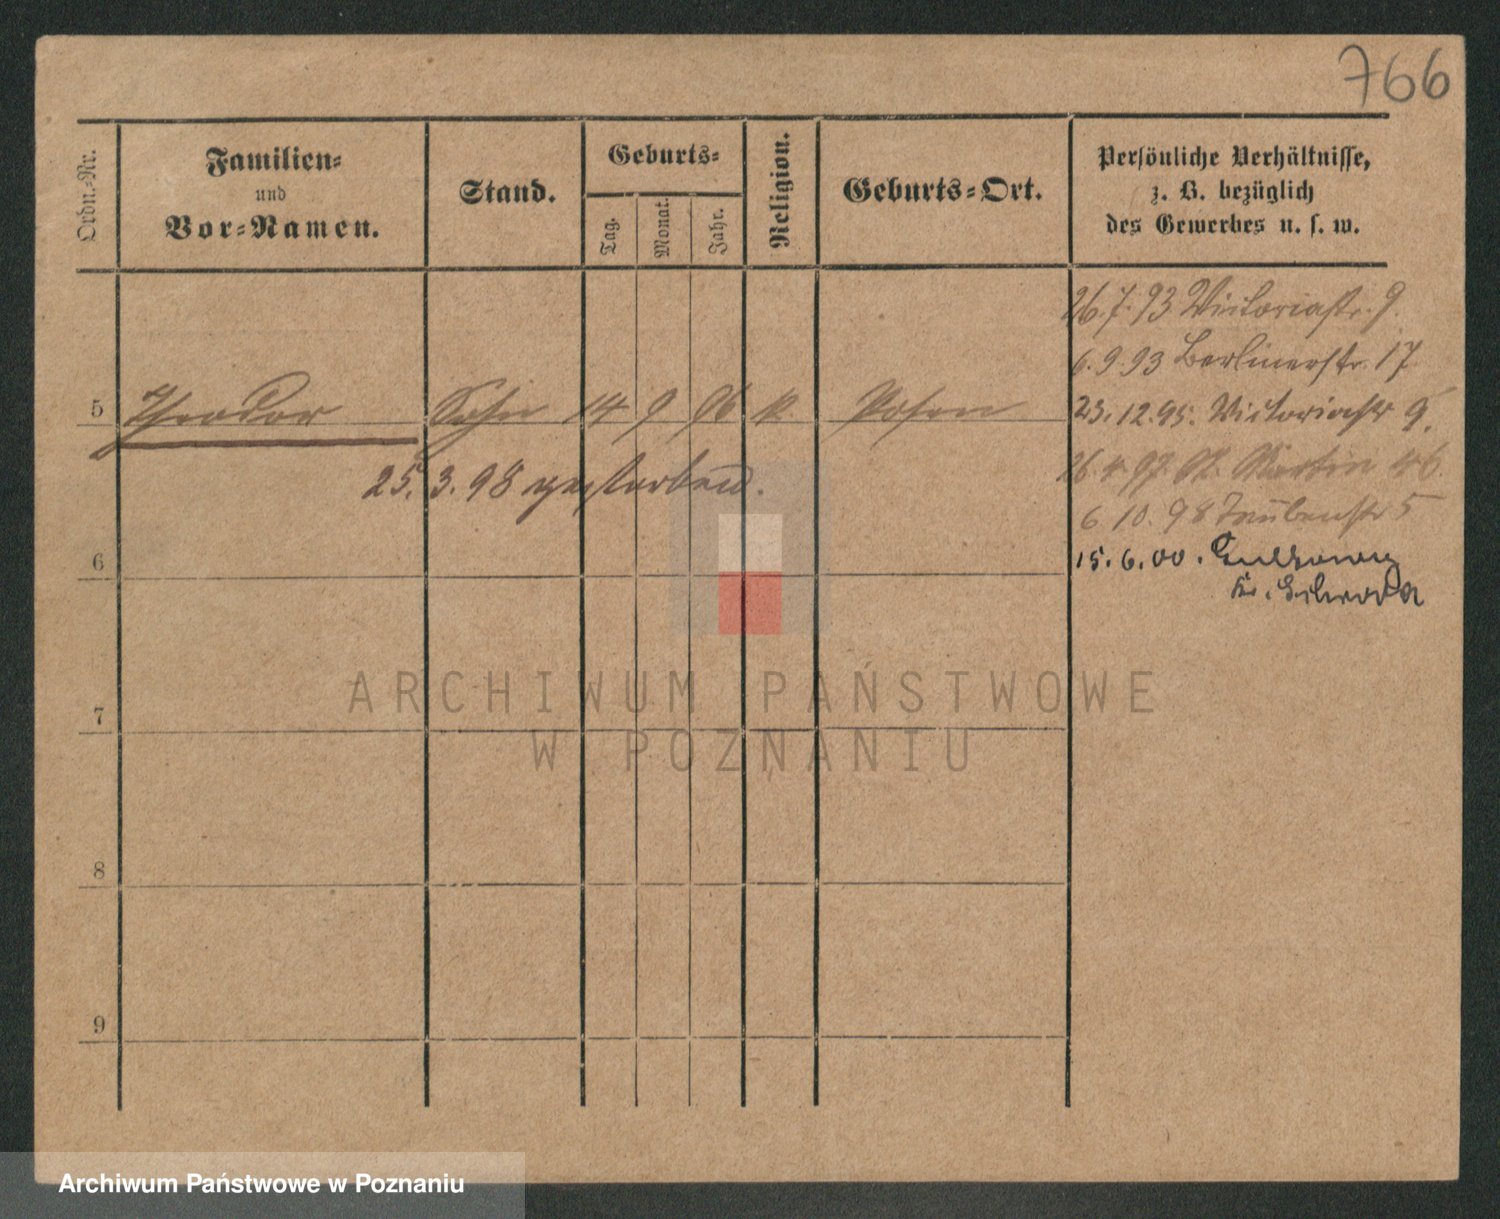 766
Ordn.-Nr.
Familien-
und
Vor-Namen.
Stand.
Geburts-
Tag.
Monat.
Jahr.
Religion.
Geburts-Ort.
Persönliche Verhältnisse,
z. B. bezüglich
des Gewerbes u. s. w.
26.7.93 Victoriastr. 9.
6.9.93 Berlinerstr. 17
5 Theodor Sohn 14 9 96 k. Posen
23.12.95. Victoriastr 9.
25.3.98 gestorben.
26.4.97. St. Martin 46.
6.10.98 Taubenstr 5
6
15.6.00.
Kr. Schroda
7
8
9
ARCHIWUM PAŃSTWOWE
W POZNANIU
Archiwum Państwowe w Poznaniu